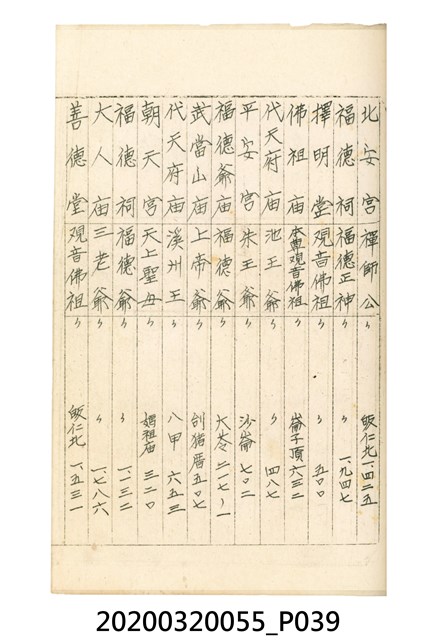 北安宮 禪師公 〃 飯仁北 一、四二五
福德祠 福德正神 〃 〃 一、九四七
擇明堂 观音佛祖 〃 〃 五〇〇
佛祖庙 本尊观音佛祖 〃 崙子頂 六三二
代天府庙 池王爺 〃 〃 四八七
平安宮 朱王爺 〃 沙崙 七〇二
福德爺庙 福德爺 〃 大苓 二一七ノ一
武當山庙 上帝爺 〃 刣猪厝 五〇七
代天府庙 溪州王 〃 八甲 六五三
朝天宮 天上聖母 〃 媽祖庙 三二〇
福德祠 福德爺 〃 〃 一、一三二
大人庙 三老爺 〃 〃 一、七八六
善德堂 观音佛祖 〃 飯仁北 一、五三一
20200320055_P039